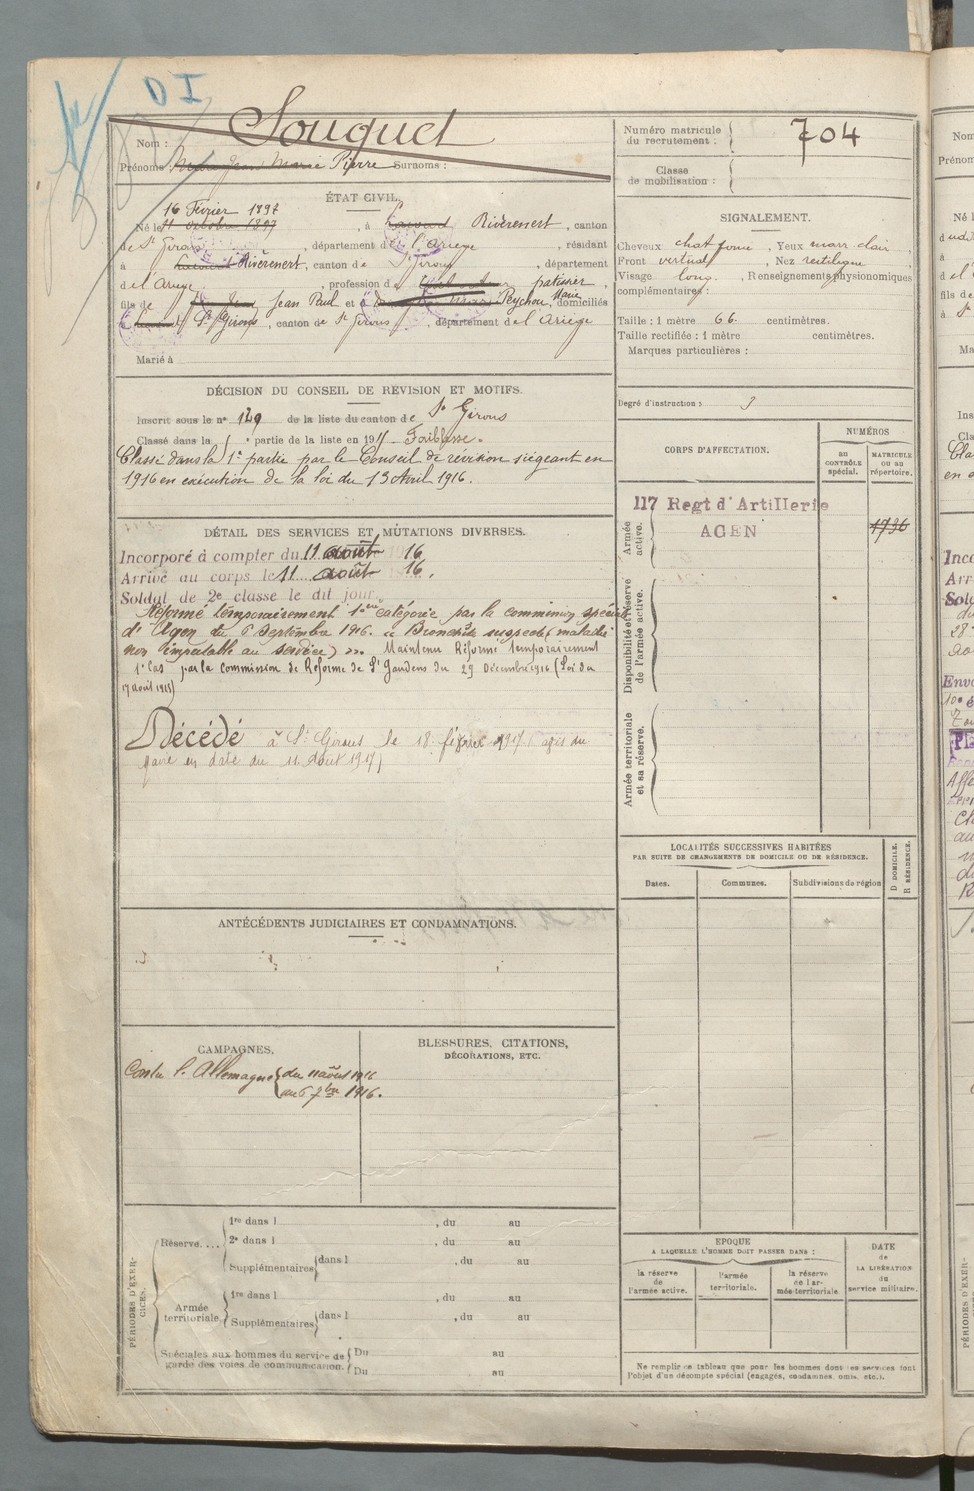 DI
Nom : Souquet
Prénoms : Jean Marie Pierre Surnoms :
Numéro matricule du recrutement : 704
Classe de mobilisation :
ÉTAT CIVIL.
16 Février 1897
Né le 11 octobre 1897, à Rivèrenert, canton
de St Girons, département de l'Ariège, résidant
à Rivèrenert, canton de St Girons, département
de l'Ariège, profession de patissier,
fils de Jean Paul et de Peychou Marie, domiciliés
à St Girons, canton de St Girons, département de l'Ariège
Marié à
SIGNALEMENT.
Cheveux chat foncé, Yeux marr clair
Front vertical, Nez rectiligne
Visage long. Renseignements physionomiques
complémentaires :
Taille : 1 mètre 66 centimètres.
Taille rectifiée : 1 mètre centimètres.
Marques particulières :
Degré d'instruction : 3
DÉCISION DU CONSEIL DE RÉVISION ET MOTIFS.
Inscrit sous le no 129 de la liste du canton de St Girons
Classé dans la partie de la liste en 191 Faiblesse.
Classé dans la 1e partie par le Conseil de révision siégeant en
1916 en exécution de la loi du 13 Avril 1916.
CORPS D'AFFECTATION.
NUMÉROS
au CONTRÔLE spécial.
MATRICULE ou au répertoire.
Armée active.
117 Regt d'Artillerie
AGEN
1736
Disponibilité et réserve de l'armée active.
Armée territoriale et sa réserve.
DÉTAIL DES SERVICES ET MUTATIONS DIVERSES.
Incorporé à compter du 11 août 16
Arrivé au corps le 11 août 16.
Soldat de 2e classe le dit jour.
Réformé temporairement 1ère catégorie par la commission spéciale
d'Agen du 6 Septembre 1916. "Bronchite suspecte (maladie
non imputable au service) ». Maintenu Réformé temporairement
1e Cas par la commission de Réforme de St Gaudens du 29 Décembre 1916 (Loi du
17 août 1915)
Décédé à St Girons le 18 février 1917 (avis du
maire en date du 11 Août 1917)
LOCALITÉS SUCCESSIVES HABITÉES
PAR SUITE DE CHANGEMENTS DE DOMICILE OU DE RÉSIDENCE.
Dates.
Communes.
Subdivisions de région
D DOMICILE.
R RÉSIDENCE.
ANTÉCÉDENTS JUDICIAIRES ET CONDAMNATIONS.
CAMPAGNES.
Contre l'Allemagne du 11 août 1916
au 6 7bre 1916.
BLESSURES, CITATIONS,
DÉCORATIONS, ETC.
PÉRIODES D'EXERCICES.
Réserve....
1re dans l , du au
2e dans l , du au
Supplémentaires dans l , du au
Armée territoriale
1re dans l , du au
Supplémentaires dans l , du au
Spéciales aux hommes du service de
garde des voies de communication.
Du au
Du au
EPOQUE
A LAQUELLE L'HOMME DOIT PASSER DANS :
la réserve de l'armée active.
l'armée territoriale.
la réserve de l'armée territoriale.
DATE
de
LA LIBÉRATION
du
service militaire.
Ne remplir ce tableau que pour les hommes dont les services font
l'objet d'un décompte spécial (engagés, condamnés, omis, etc.).